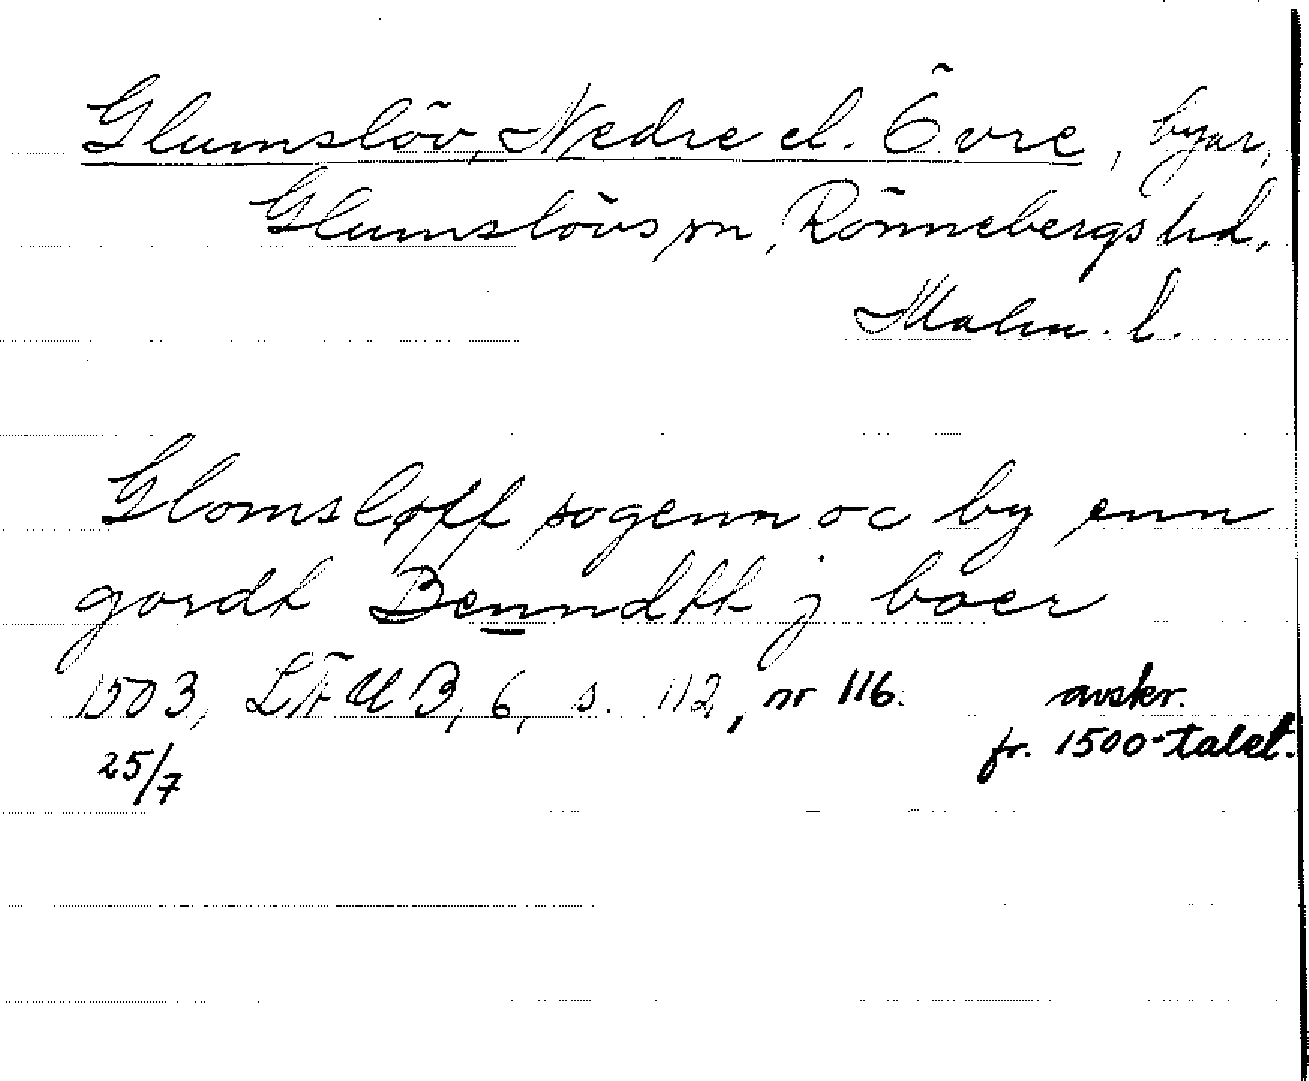 Glumslöv, Nedre el. Övre, byar,
Glumslövs sn, Rönnebergs hd,
Malm. l.
Glomsløff sogenn oc by enn
gordt Benndtt j boer
1503, LÄUB, 6, s. 112, nr 116. avskr.
25/7 fr. 1500-talet.